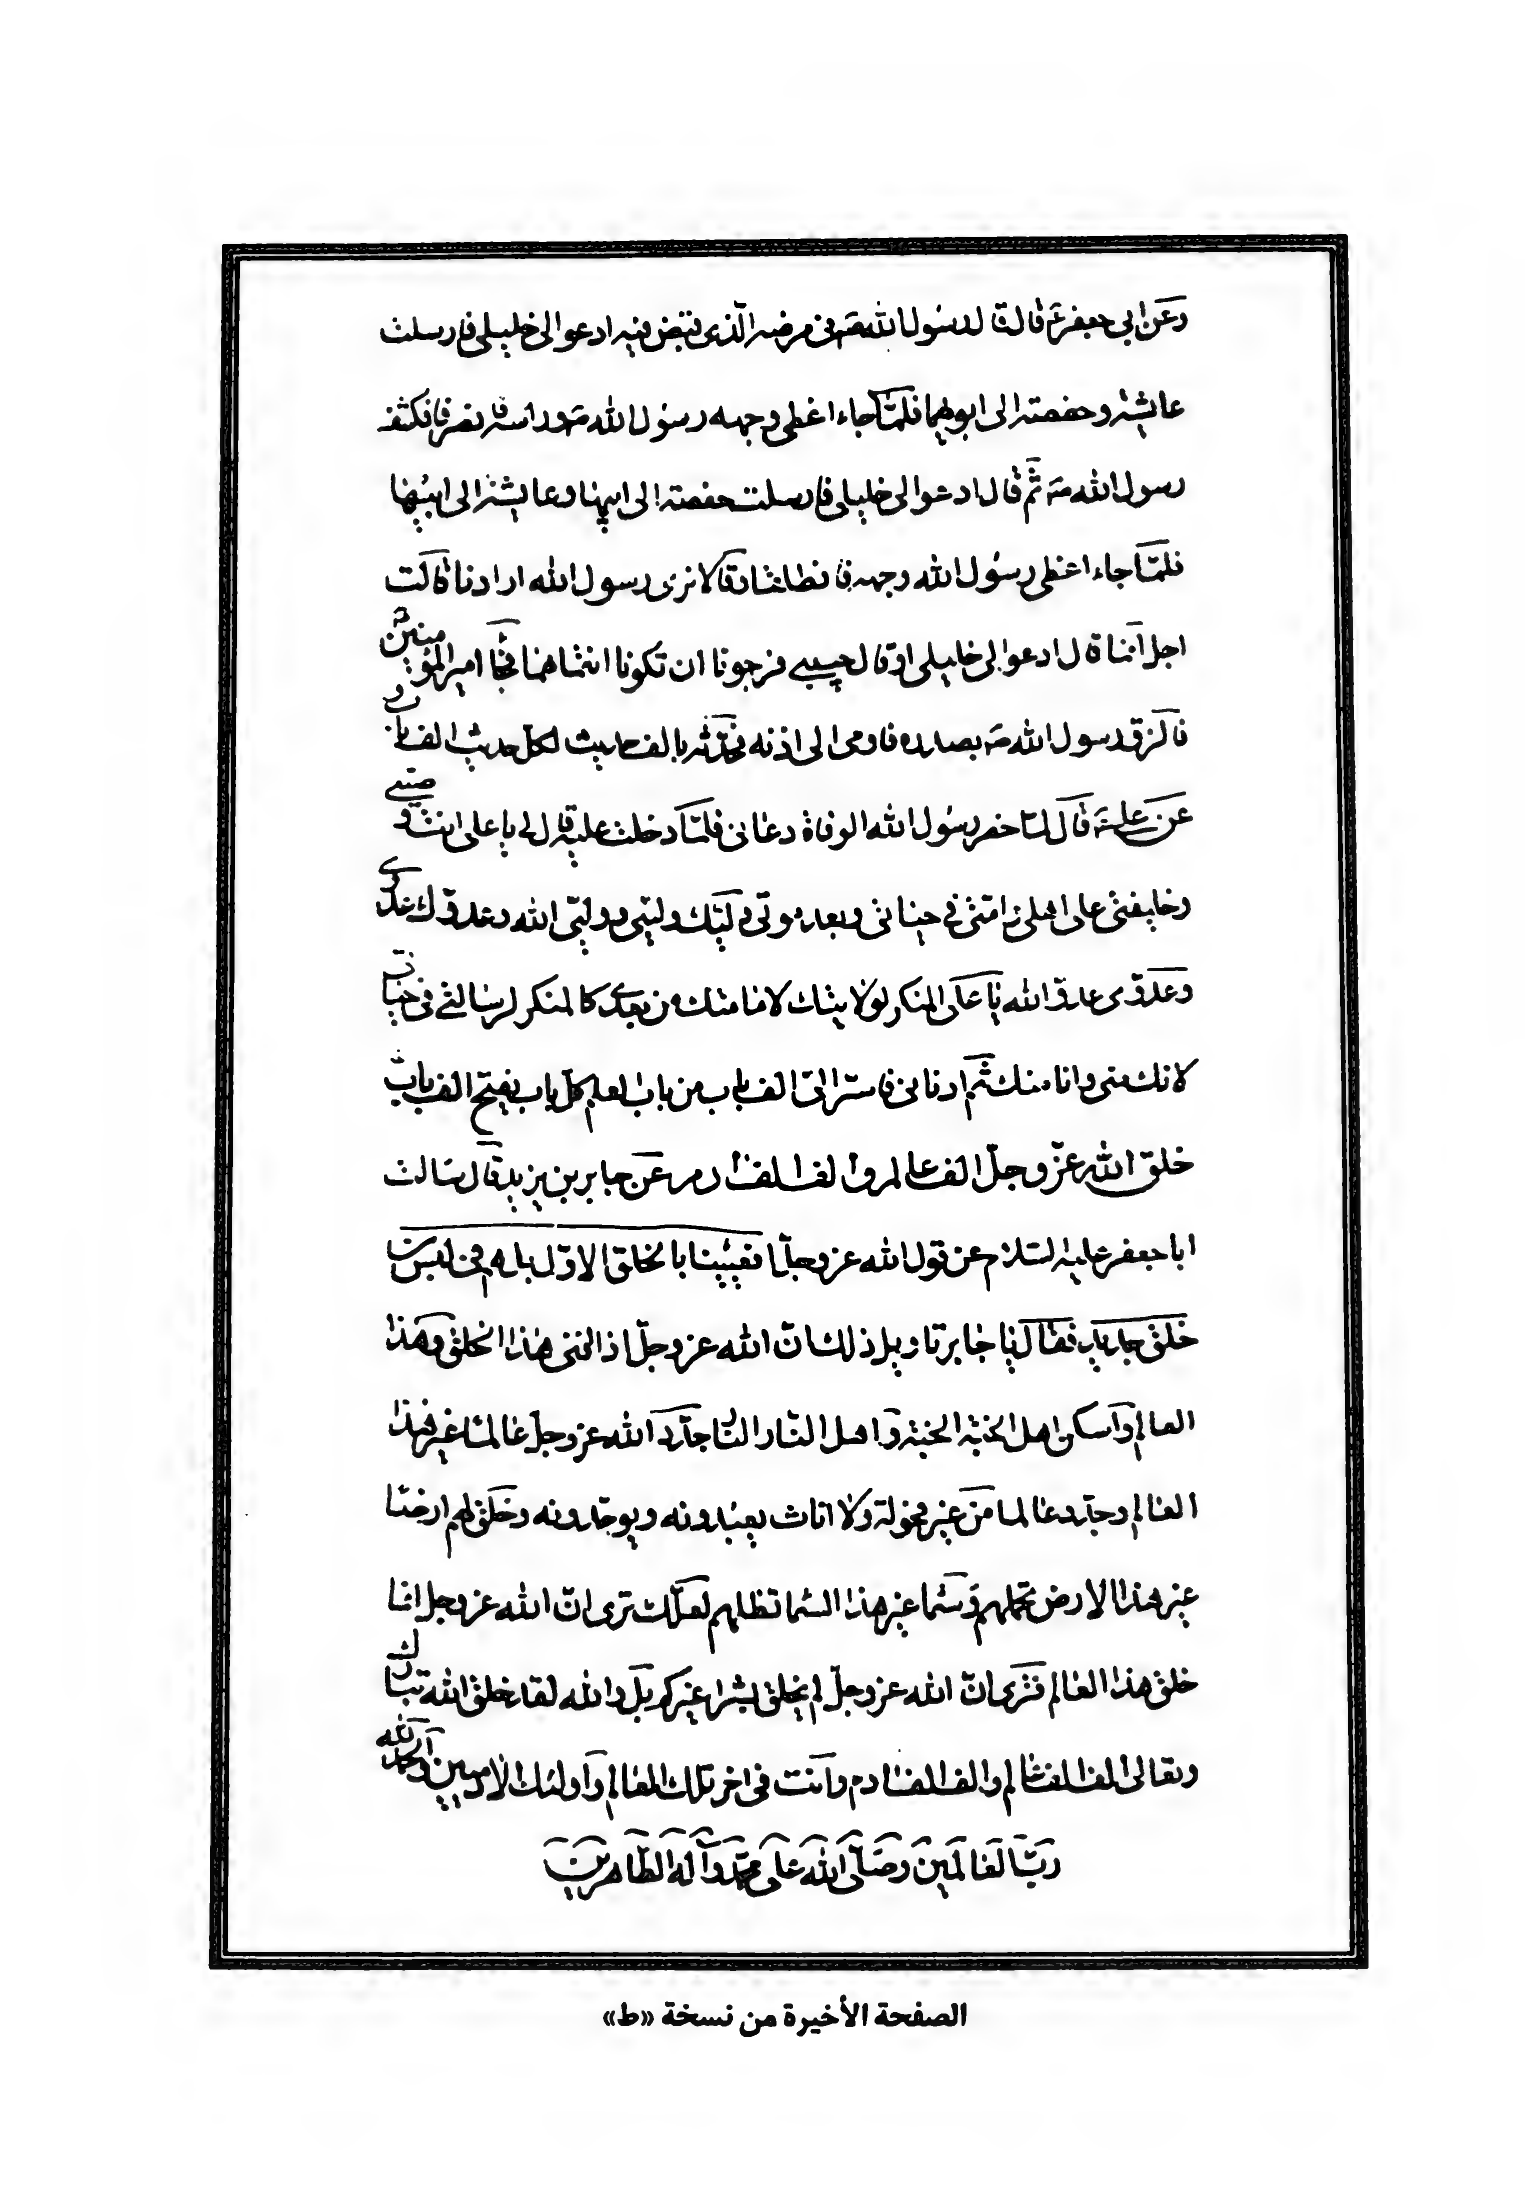 وعن ابي جعفر ع قال قا لد رسول الله ص في مرضه الذى قبض فيه ادعوا لى خليلى فارسلت
عايشة وحفصة الى ابويهما فلما جاءا غطى وجهه رسول الله ص وراسه فانصرفا فكشف
رسول الله ص ثم قال ادعوا لى خليلى فارسلت حفصة الى ابيها وعايشة الى ابيها
فلما جاءا غطى رسول الله وجهه فانطلقا وقالا نرى رسول الله ارادنا قالت
اجل انما قال ادعوا لى خليلى او قال حبيبى فرجونا ان تكونا انتما هما فجا امير المؤمنين
فالزق رسول الله ص بصدره واومى الى اذنه فحدثه بالف حديث لكل حديث الف باب
عن على ع قال لما حضر رسول الله الوفاة دعانى فلما دخلت عليه قال لى يا على انت وصيى
وخليفتى على اهلى و امتى فى حياتى وبعد موتى وليك وليى ووليى الله وعدوك عدوى
وعدوى عدو الله يا على المنكر لولايتك لامامتك من بعدى كالمنكر لرسالتى فى حياتى
لانك منى وانا منك ثم ادنانى فاسر الى الف باب من باب العلم كل باب يفتح الف باب
خلق الله عز وجل الف عالم والف الف ادم عن جابر بن يزيد قال سالت
ابا جعفر عليه السلام عن قول الله عز وجل افعيينا بالخلق الاول بل هم فى لبس من
خلق جديد فقال يا جابر تاويل ذلك ان الله عز وجل اذا افنى هذا الخلق وهذا
العالم واسكن اهل الجنة الجنة واهل النار النار جدد الله عز وجل عالما غير هذا
العالم وجدد عالما من غير فحولة ولا اناث يعبدونه ويوحدونه وخلق لهم ارضا
غير هذا الارض تحملهم وسما غير هذا السما تظلهم لعلك ترى ان الله عز وجل انما
خلق هذا العالم فترى ان الله عز وجل لم يخلق بشرا غيركم بل والله لقد خلق الله تبارك
وتعالى الف الف عالم والف الف ادم وانت فى اخر تلك العالم واولئك الادميين والحمد لله
رب العالمين وصلى الله على محمد وآله الطاهرين
الصفحة الأخيرة من نسخة «ط»